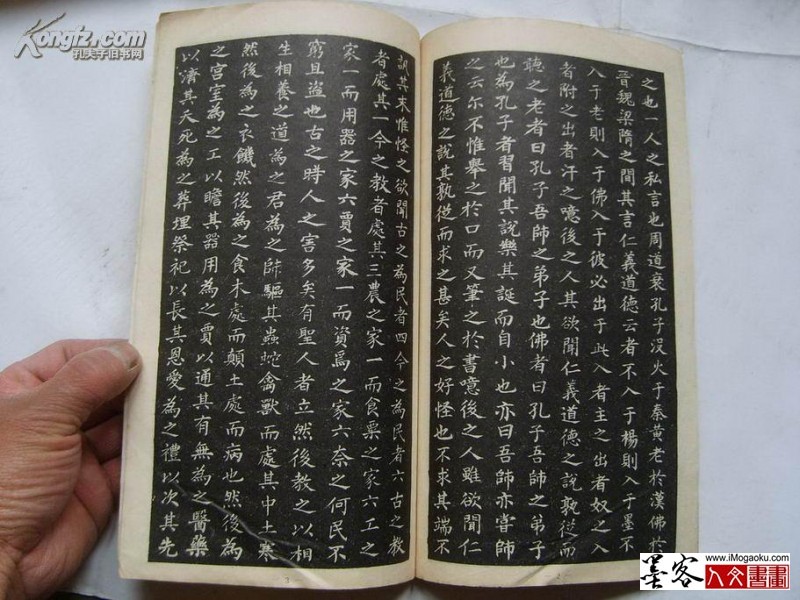 Kongfz.com
孔夫子旧书网
之也一人之私言也周道衰孔子没火于秦黄老於漢佛於
晉魏梁隋之間其言仁義道德云者不入于楊則入于墨不
入于老則入于佛入于彼必出于此入者主之出者奴之入
者附之出者汙之噫後之人其欲聞仁義道德之說孰從而
聽之老者曰孔子吾師之弟子也佛者曰孔子吾師之弟子
也為孔子者習聞其說樂其誕而自小也亦曰吾師亦嘗師
之云尔不惟舉之於口而又筆之於書噫後之人雖欲聞仁
義道德之說其孰從而求之甚矣人之好怪也不求其端不
訊其末惟怪之欲聞古之為民者四今之為民者六古之教
者處其一今之教者處其三農之家一而食粟之家六工之
家一而用器之家六賈之家一而資焉之家六奈之何民不
窮且盜也古之時人之害多矣有聖人者立然後教之以相
生相養之道為之君為之師驅其蟲蛇禽獸而處其中土寒
然後為之衣饑然後為之食木處而顛土處而病也然後為
之宮室為之工以贍其器用為之賈以通其有無為之醫藥
以濟其夭死為之葬埋祭祀以長其恩愛為之禮以次其先
墨客
www.iMogaoku.com
人文書畫